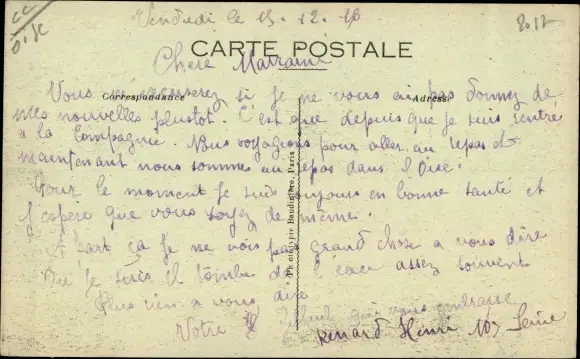 cc
Oise
8.17
Vendredi le 15. 12. 16
CARTE POSTALE
Chere Marraine
Correspondance
Adresse
Vous m'excuserez si je ne vous ai pas donnez de
mes nouvelles plustot. C'est que depuis que je suis rentré
a la compagnie. Nous voyagions pour aller au repos et
maintenant nous sommes au repos dans l'Oise.
Pour le moment Je suis toujours en bonne santé et
J'espère que vous soyez de même.
A part ça Je ne vois pas grand chose a vous dire
Ou Je suis Il tombe de l'eau assez souvent
Plus rien a vous dire
Votre filleul qui vous embrasse
Renard Henri 107 Seine
Phototypie Baudinière, Paris